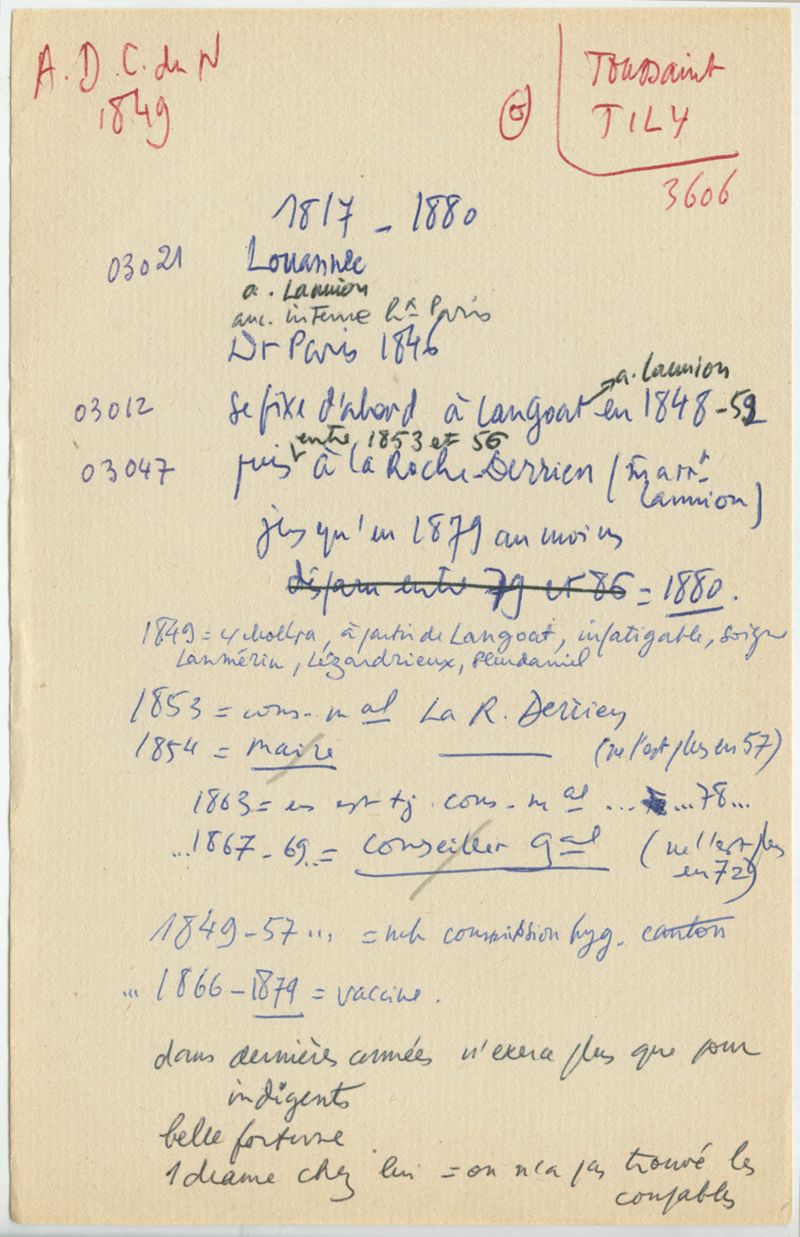 A. D. C. du N
1849
Toussaint
TILY
3606
1817 - 1880
03021 Louannec
a. Lannion
anc. interne hx Paris
Dr Paris 1846
03012 se fixe d'abord à Langoat en 1848-52
a. Lannion
entre 1853 et 56
03047 puis à la Roche-Derrien (m arrt
Lannion)
jusqu'en 1879 au moins
dispar entre 79 et 86 = 1880.
1849 = choléra, à partir de Langoat, infatigable, soigne
Lanmérin, Lézardrieux, Pleudaniel
1853 = cons. m al La R. Derrien
1854 = maire ——— (ne l'est plus en 57)
1863 = en est tj. cons. m al ... ...78...
...1867-69.. = conseiller gal (ne l'est plus
en 72)
1849-57... = mb commission hyg. canton
... 1866-1879 = vaccine.
dans dernières années n'exerce plus que pour
indigents
belle fortune
1 drame chez lui = on n'a pas trouvé les
coupables